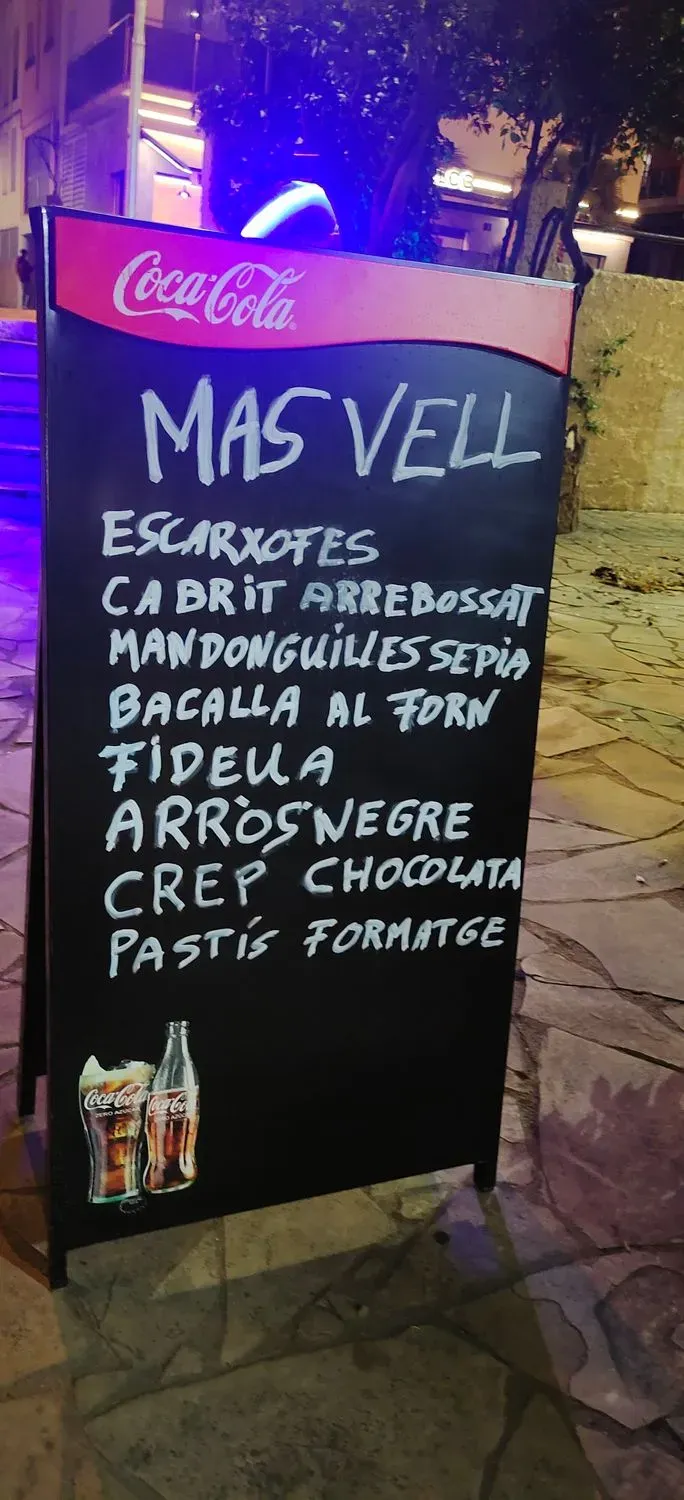 Coca-Cola
MAS VELL
ESCARXOFES
CABRIT ARREBOSSAT
MANDONGUILLES SEPIA
BACALLA AL FORN
FIDEUA
ARRÒS NEGRE
CREP CHOCOLATA
PASTÍS FORMATGE
Coca-Cola
ZERO AZÚCAR
Coca-Cola